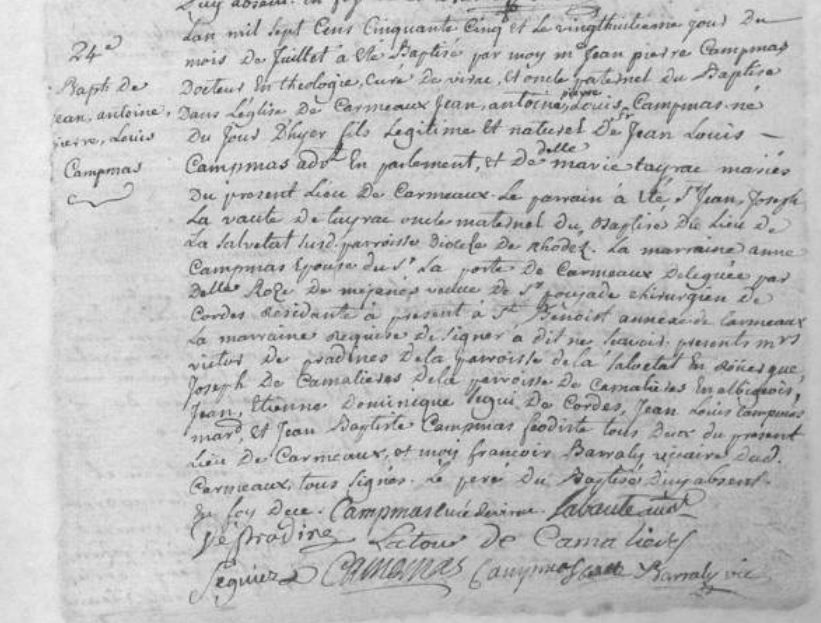 Duy absent. En foy
24e
Bapt. De
Jean, antoine,
pierre, Louis
Campmas
Lan mil sept Cens Cinquante Cinq et Le vingthuitieme jour Du
mois De Juillet à eté Baptisé par moy mre Jean pierre Campmas
Docteur En theologie, Curé De virac, et oncle paternel du Baptisé
Dans Léglise De Carmeaux Jean, antoine, pierre, Louis Campmas né
Du Jour D'hyer fils Legitime Et naturel De Sr Jean Louis –
Campmas advt En parlement, et De delle marie tayrac mariés
Du present Lieu De Carmeaux. Le parrain à eté Sr Jean, Joseph
La vaute De tayrac oncle maternel du Baptisé Du Lieu De
La Salvetat susd. parroisse Dioceze De Rhodez. La marraine anne
Campmas Epouse du Sr La porte De Carmeaux Deleguée par
Delle Roze De mejanes veuve De Sr poujade chirurgien de
Cordes Residante à present à St Benoist annexe de Carmeaux
La marraine Requise De signer à dit ne scavoir. presents mrs
victor De pradines De la parroisse de la Salvetat En Roüergue,
Joseph De Camalieres De la parroisse De Camalieres En albigeois,
Jean, Etienne Dominique Segui De Cordes, Jean Louis Campmas
mard, et Jean Baptiste Campmas feodiste tous Deux du present
Lieu De Carmeaux, et moy francois Barraly vicaire dud.
Carmeaux, tous signés. Le pere Du Baptisé D'uy absent.
En foy Dece. Campmas curé de virac. Labaute
Pradine Latour de Camalieres
Seguier Campmas Campmas Barraly vic.